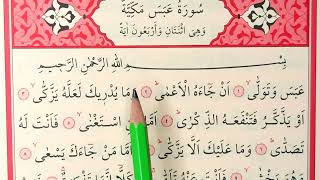 سُورَةُ عَبَسَ مَكِّيَّةٌ
وَهِىَ اثْنَتَانِ وَأَرْبَعُونَ اٰيَةً
بِسْمِ اللّٰهِ الرَّحْمٰنِ الرَّحِيمِ
عَبَسَ وَتَوَلّٰىۙ ﴿١﴾ اَنْ جَاءَهُ الْاَعْمٰىۜ ﴿٢﴾ وَمَا يُدْرِيكَ لَعَلَّهُ يَزَّكّٰىۙ ﴿٣﴾
اَوْ يَذَّكَّرُ فَتَنْفَعَهُ الذِّكْرٰىۜ ﴿٤﴾ اَمَّا مَنِ اسْتَغْنٰىۙ ﴿٥﴾ فَاَنْتَ لَهُ
تَصَدّٰىۜ ﴿٦﴾ وَمَا عَلَيْكَ اَلَّا يَزَّكّٰىۜ ﴿٧﴾ وَاَمَّا مَنْ جَاءَكَ يَسْعٰىۙ ﴿٨﴾